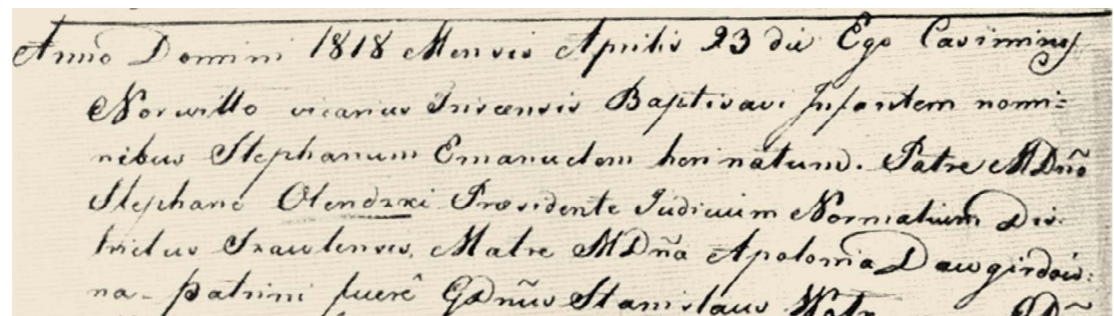 Anno Domini 1818 Mensis Aprilis 23 die Ego Casimirus
Norwitto vicarius Baptisavi Infantem nomi=
nibus Stephanum Emanuelem heri natum. Patre MDño
Stephano Olendzki Præsidente Judicium Normatium Dis:
trictus Matre MDña Apolonia Dawgirdow:
na - patrini fuerê GDñus Stanislaus